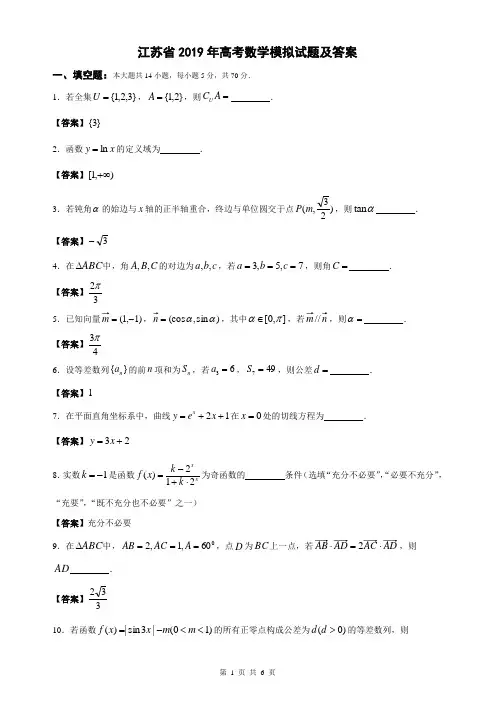 江苏省2019年高考数学模拟试题及答案
一、填空题:本大题共14小题,每小题5分,共70分.
1.若全集U={1,2,3},A={1,2},则C_U A= .
【答案】{3}
2.函数y=ln x的定义域为 .
【答案】[1,+∞)
3.若钝角α的始边与x轴的正半轴重合,终边与单位圆交于点P(m,√3/2),则tanα .
【答案】−√3
4.在ΔABC中,角A,B,C的对边为a,b,c,若a=3,b=5,c=7,则角C= .
【答案】2π/3
5.已知向量m=(1,−1),n=(cosα,sinα),其中α∈[0,π],若m//n,则α= .
【答案】3π/4
6.设等差数列{a_n}的前n项和为S_n,若a_3=6,S_7=49,则公差d= .
【答案】1
7.在平面直角坐标系中,曲线y=e^x+2x+1在x=0处的切线方程为 .
【答案】y=3x+2
8.实数k=−1是函数f(x)=(k−2^x)/(1+k·2^x)为奇函数的 条件(选填“充分不必要”,“必要不充分”,
“充要”,“既不充分也不必要”之一)
【答案】充分不必要
9.在ΔABC中,AB=2,AC=1,A=60⁰,点D为BC上一点,若AB·AD=2AC·AD,则
AD .
【答案】2√3/3
10.若函数f(x)=|sin3x|−m(0<m<1)的所有正零点构成公差为d(d>0)的等差数列,则
第 1 页 共 6 页